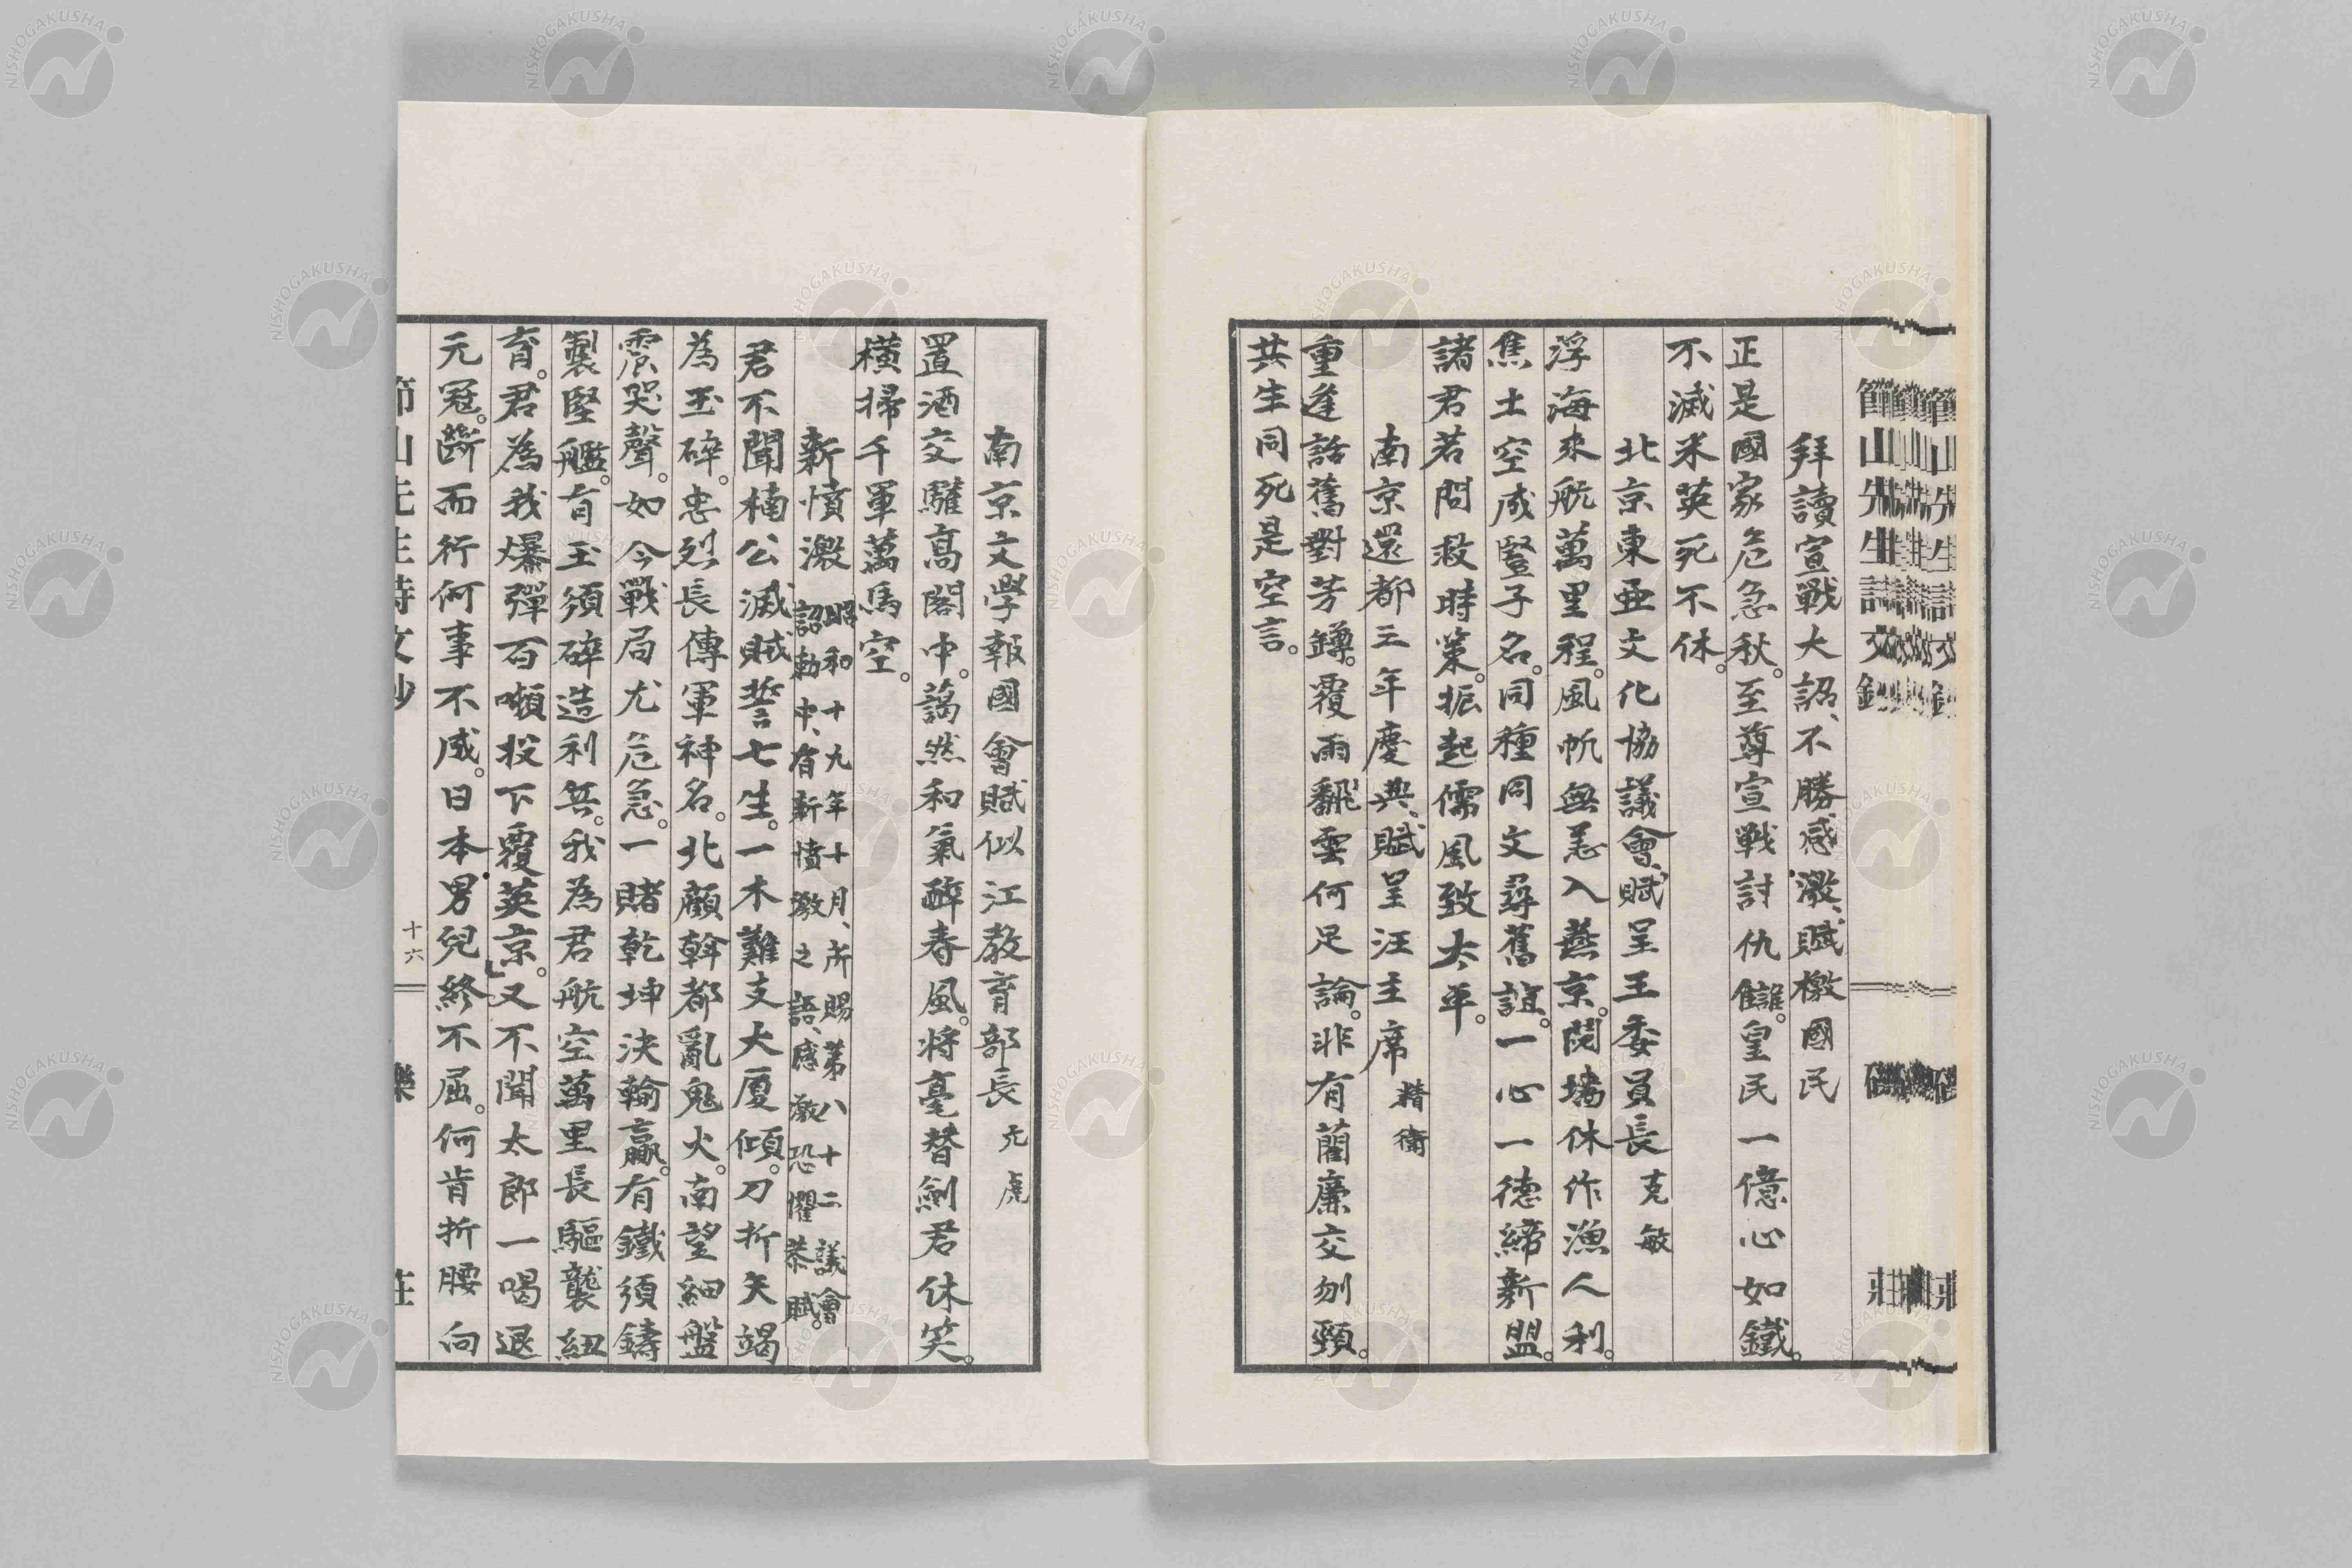 拜讀宣戰大詔、不勝感激、賦檄國民
正是國家危急秋。至尊宣戰討仇讎。皇民一億心如鐵。
不滅米英死不休。
北京東亜文化協議會、賦呈王委員長克敏
浮海来航萬里程。風帆無恙入燕京。鬩墻休作漁人利。
焦土空成豎子名。同種同文尋舊誼。一心一德締新盟。
諸君若問救時策。振起儒風致太平。
南京還都三年慶典、賦呈汪主席精衛
重逢話舊對芳罇。覆雨翻雲何足論。非有藺廉交刎頸。
共生同死是空言。
南京文學報國會賦似江教育部長亢虎
置酒交驩髙閣中。藹然和氣醉春風。将毫替劍君休笑。
横掃千軍萬馬空。
新憤激 昭和十九年十月、所賜第八十二議會
詔勅中、有新憤激之語、感激恐懼恭賦。
君不聞楠公滅賊誓七生。一木難支大厦傾。刀折矢竭
為玉碎。忠烈長傳軍神名。北顧斡都亂鬼火。南望細盤
震哭聲。如今戰局尤危急。一賭乾坤決輸贏。有鐵須鑄
製堅艦。有玉須碎造利兵。我為君航空萬里長驅襲紐
育。君為我爆彈百噸投下覆英京。又不聞太郎一喝退
元冦。斷而行何事不成。日本男兒終不屈。何肯折腰向
節山先生詩文鈔
十六
樂
莊
NISHOGAKUSHA